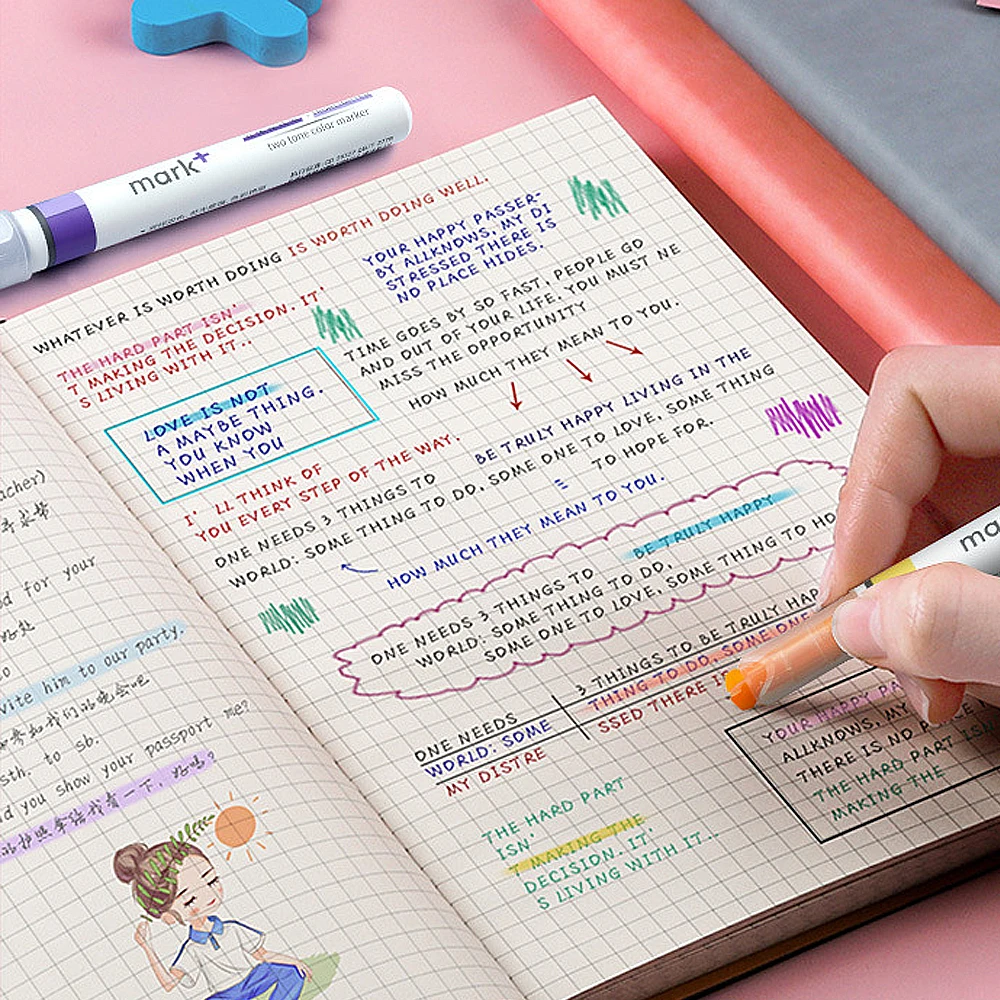 mark+
two tone color marker
WHATEVER IS WORTH DOING IS WORTH DOING WELL.
THE HARD PART ISN'
T MAKING THE DECISION. IT'
S LIVING WITH IT..
YOUR HAPPY PASSER-
BY ALLKNOWS, MY DI
STRESSED THERE IS
NO PLACE HIDES.
LOVE IS NOT
A MAYBE THING.
YOU KNOW
WHEN YOU
TIME GOES BY SO FAST, PEOPLE GO
AND OUT OF YOUR LIFE. YOU MUST NE
MISS THE OPPORTUNITY
HOW MUCH THEY MEAN TO YOU.
I' LL THINK OF
YOU EVERY STEP OF THE WAY.
BE TRULY HAPPY LIVING IN THE
ONE NEEDS 3 THINGS TO
WORLD: SOME THING TO DO, SOME ONE TO LOVE, SOME THING
TO HOPE FOR.
HOW MUCH THEY MEAN TO YOU.
BE TRULY HAPPY
ONE NEEDS 3 THINGS TO
WORLD: SOME THING TO DO,
SOME ONE TO LOVE, SOME THING TO HO
3 THINGS TO BE TRULY HAP
THING TO DO, SOME ONE
SSED THERE I
ONE NEEDS
WORLD: SOME
MY DISTRE
YOUR HAPPY PA
ALLKNOWS, MY
THERE IS NO PLACE
THE HARD PART ISN
MAKING THE
THE HARD PART
ISN'
T MAKING THE
DECISION. IT'
S LIVING WITH IT..
acher)
d for your
vite him to our party.
sth. to sb.
d you show your passport me?
ma